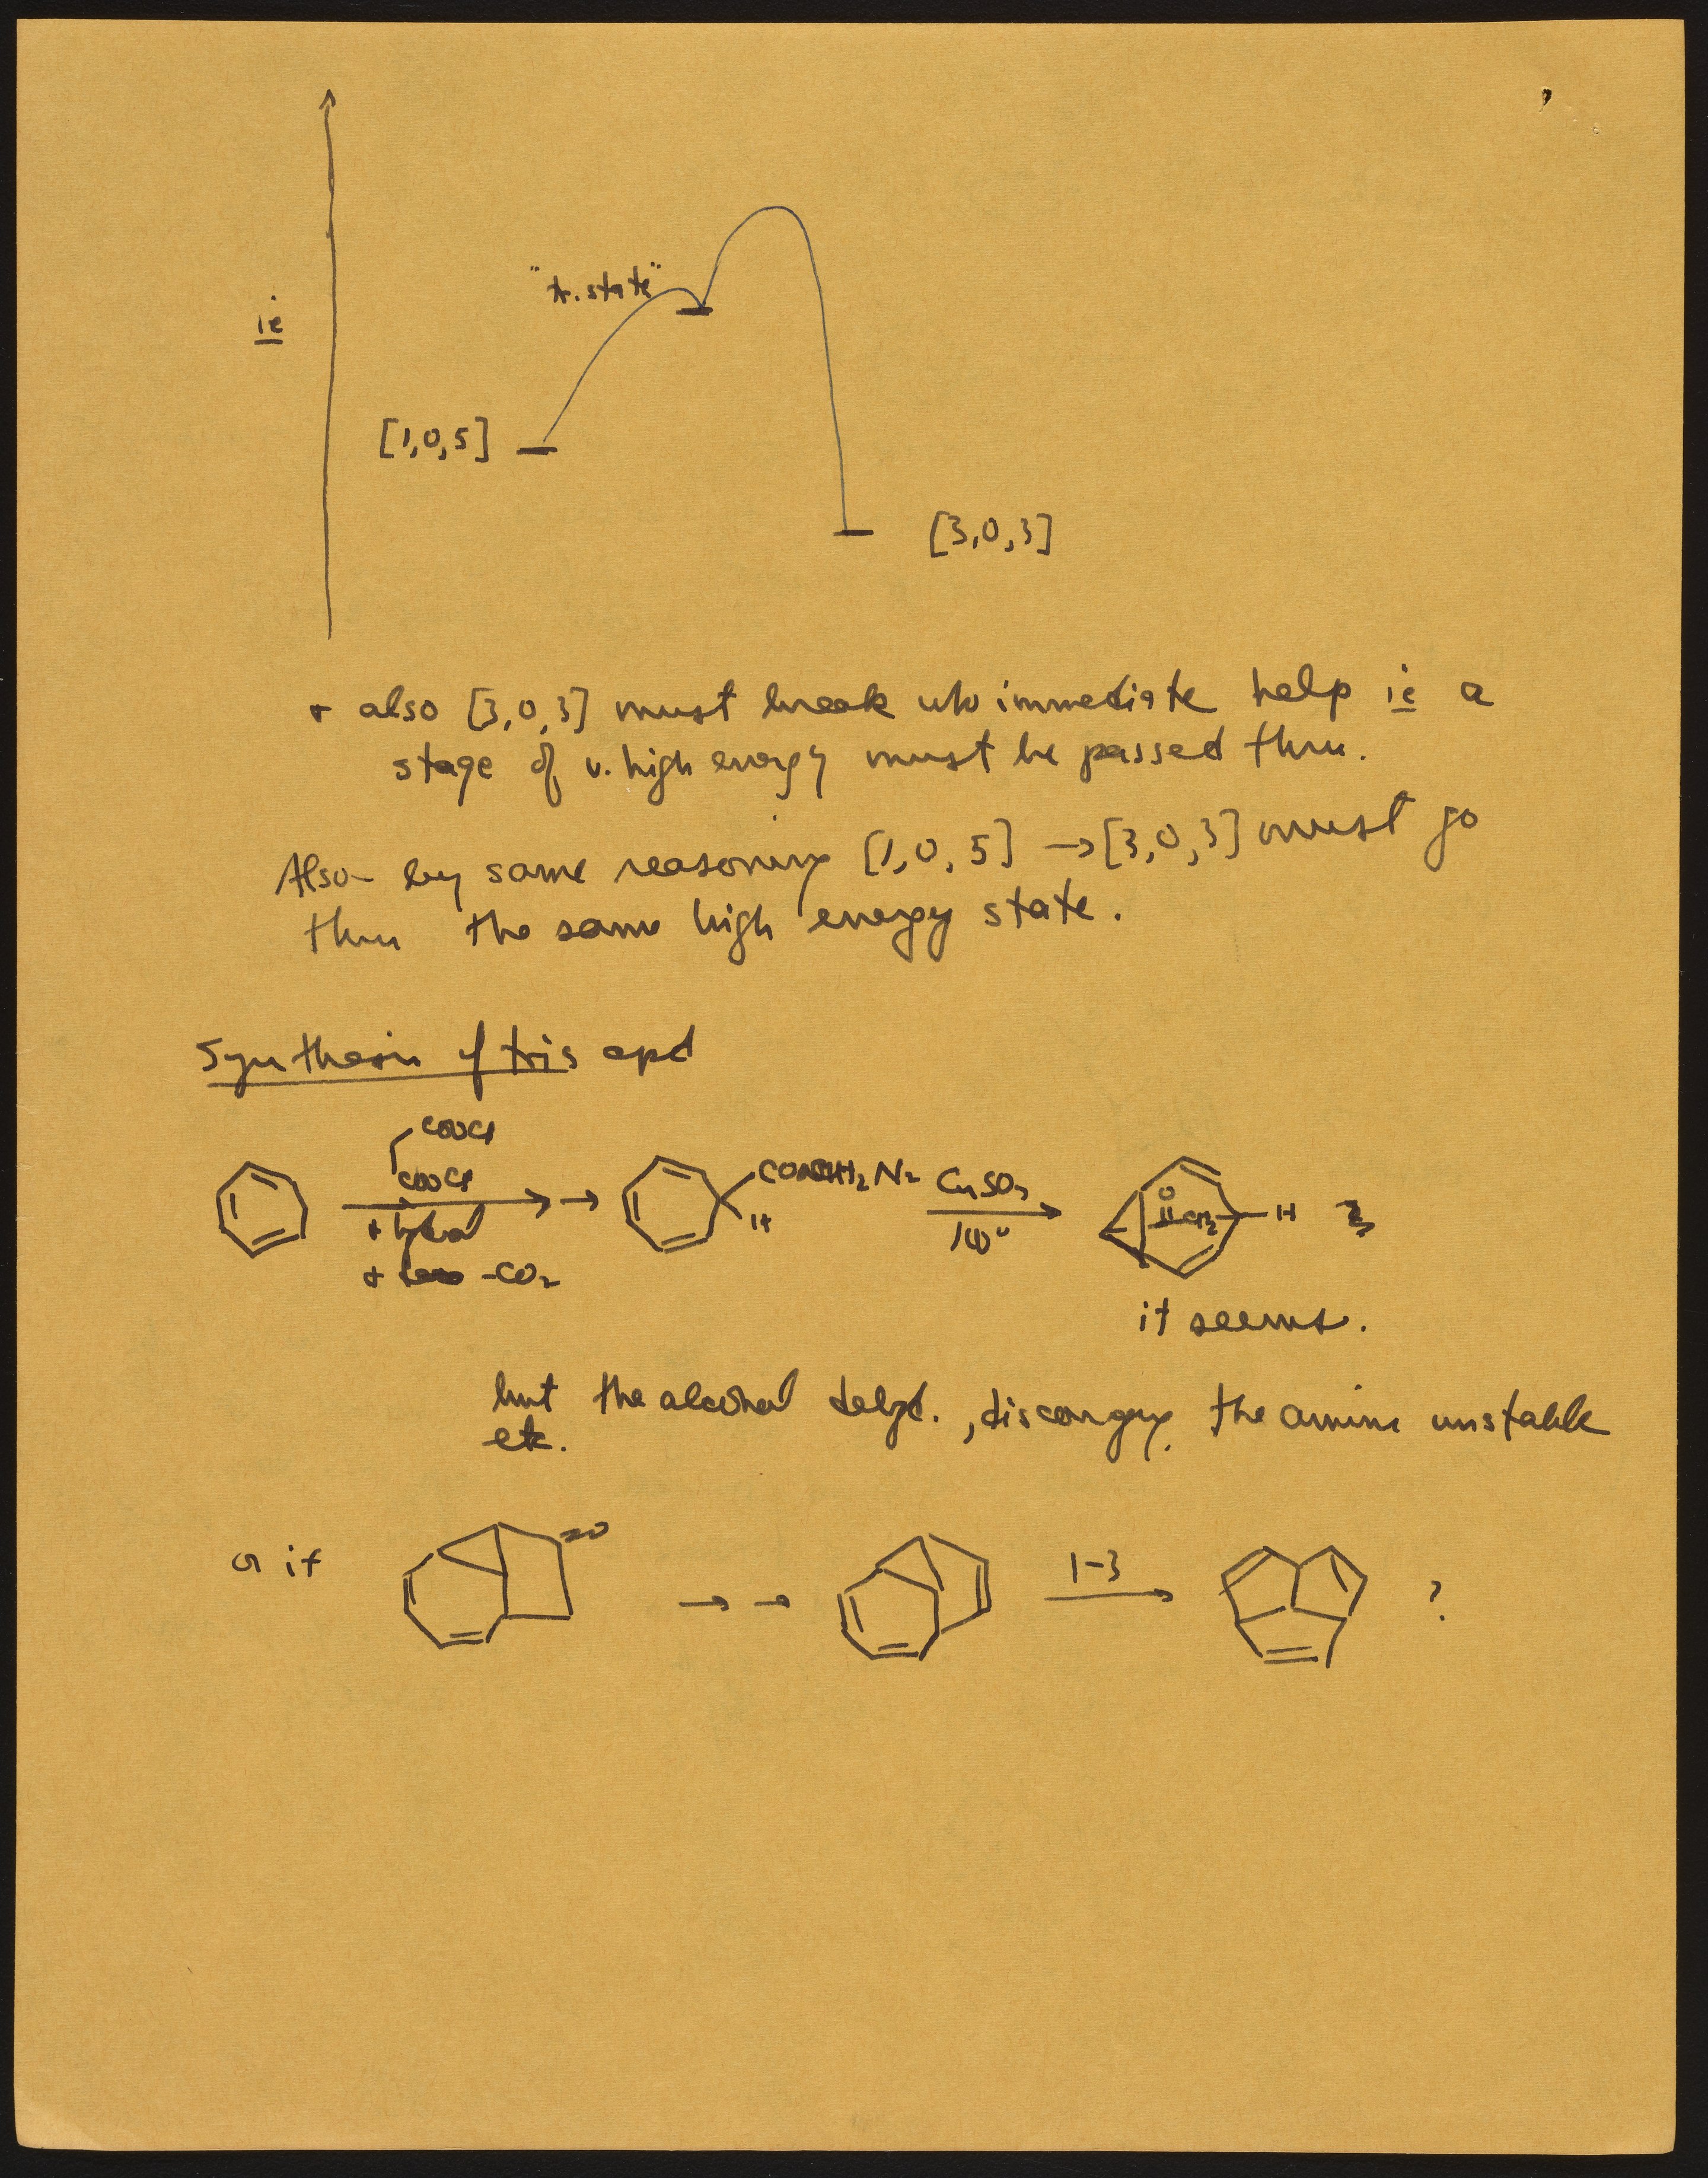 ie
"tr. state"
[1,0,5]
[3,0,3]
+ also [3,0,3] must break w/o immediate help ie a
stage of v. high energy must be passed thru.
Also by same reasoning [1,0,5] → [3,0,3] must go
thru the same high energy state.
Synthesis of this cpd
COOCl
COOCl
+ hydrol
+ -CO2
H
N2
CuSO4
100°
O
CH2
H
it seems.
but the alcohol dehyd., discouragy, the amine unstable
etc.
or if
=O
→ →
1-3
?